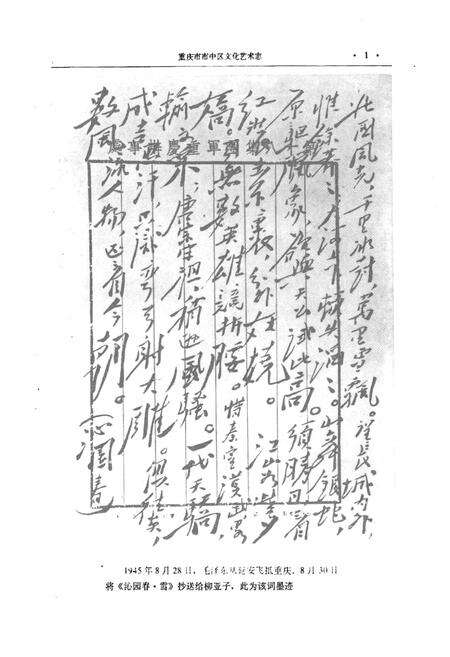 重庆市市中区文化艺术志
· 1 ·
北国风光,千里冰封,萬里雪飄。望長城内外,
惟餘莽莽;大河上下,頓失滔滔。山舞銀蛇,
原驱腊象,欲与天公试比高。须晴日,看
红装素裹,分外妖娆。江山如此多
嬌,引無数英雄競折腰。惜秦皇漢武,略
輸文采;唐宗宋祖,稍逊風騷。一代天驕,
成吉思汗,只识弯弓射大雕。俱往矣,
数風流人物,还看今朝。沁園春
團軍重慶辦事處
1945年8月28日,毛泽东从延安飞抵重庆,8月30日
将《沁园春·雪》抄送给柳亚子,此为该词墨迹